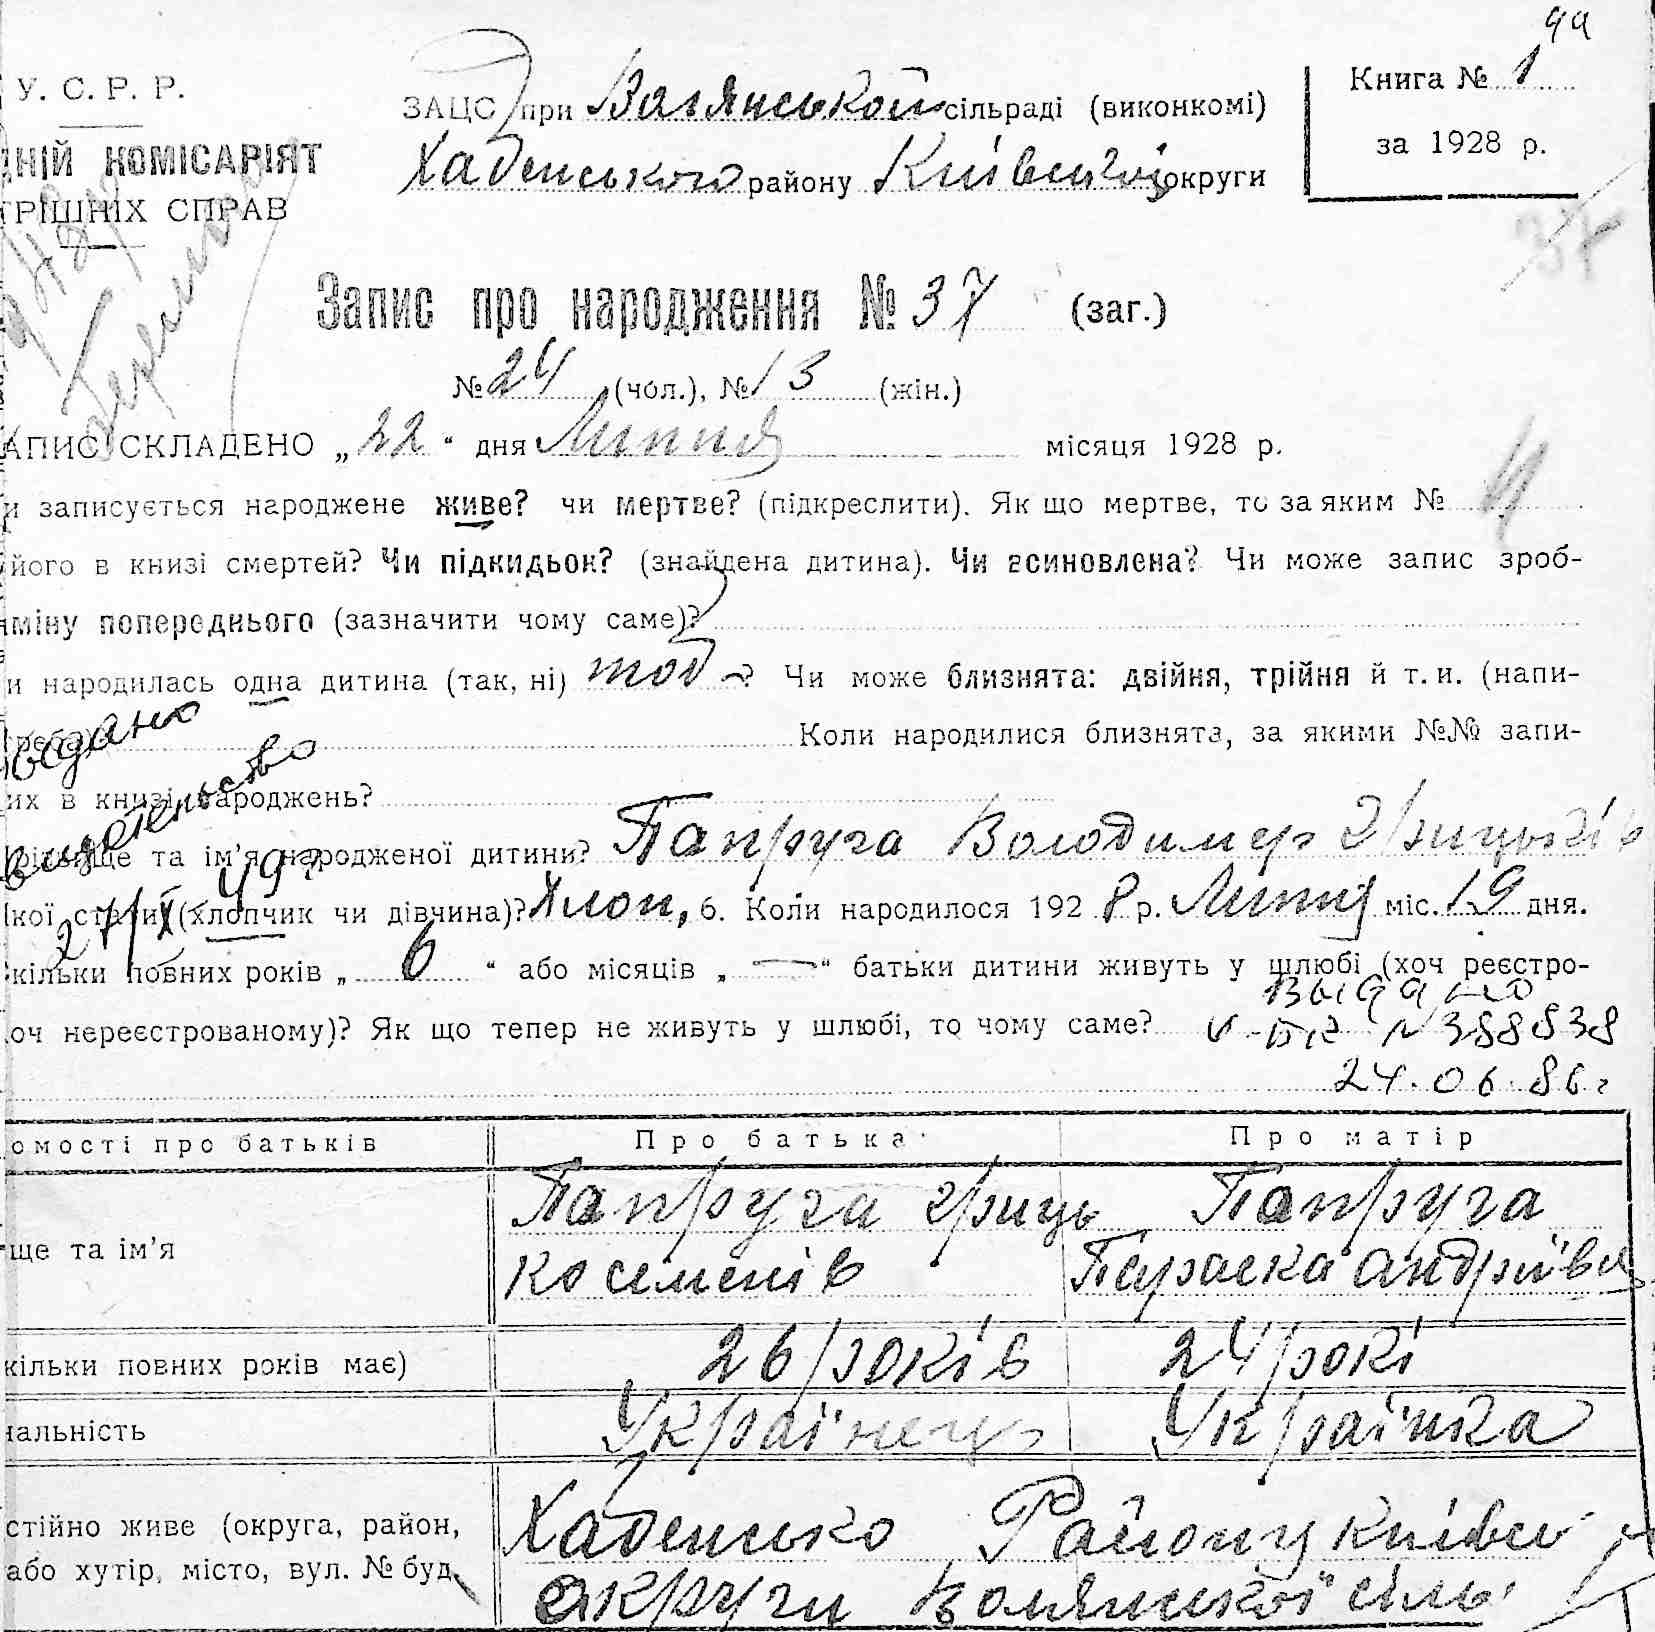 У. С. Р. Р.
ДНІЙ КОМІСАРІЯТ
ТРІШНІХ СПРАВ
ЗАЦС при сільраді (виконкомі)
району округи
Книга № 1
за 1928 р.
Запис про народження № 37 (заг.)
№ 24 (чол.), № 13 (жін.)
АПИС СКЛАДЕНО „22“ дня Липня місяця 1928 р.
и записується народжене живе? чи мертве? (підкреслити). Як що мертве, то за яким №
його в книзі смертей? Чи підкидьок? (знайдена дитина). Чи всиновлена? Чи може запис зроб-
міну попереднього (зазначити чому саме)?
и народилась одна дитина (так, ні) ? Чи може близнята: двійня, трійня й т. и. (напи-
Коли народилися близнята, за якими №№ запи-
их в книзі народжень?
свидетельство
та ім'я народженої дитини? Папруга Володимер Грицьків
кої стати (хлопчик чи дівчина)? Хлоп, 6. Коли народилося 1928 р. Липня міс. 19 дня.
кільки повних років „ 6 “ або місяців „ — “ батьки дитини живуть у шлюбі (хоч реєстро-
выдано
оч нереєстрованому)? Як що тепер не живуть у шлюбі, то чому саме? № 388838
24.06.86г
омості про батьків Про батька Про матір
Папруга Гриць Папруга
ще та ім'я
Параска Андріївна
кільки повних років має) 26 років 24 рокі
нальність Українець Українка
стійно живе (округа, район, Району Київсь
або хутір, місто, вул. № буд. округи сіль